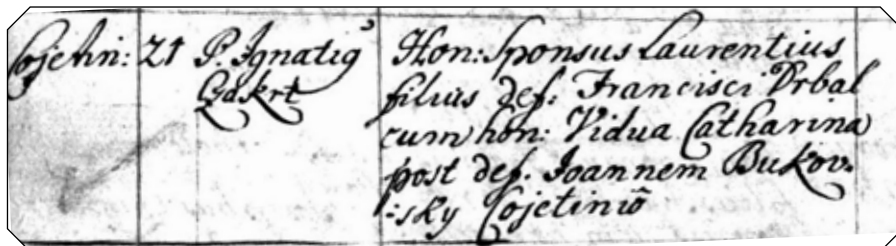 Cojetin: 21 P. Ignatig Hon: Sponsus Laurentius
Czakrt filius def: Francisci Drbal
cum hon: Vidua Catharina
post def. Joannem Bukov-
:sky Cojetinio